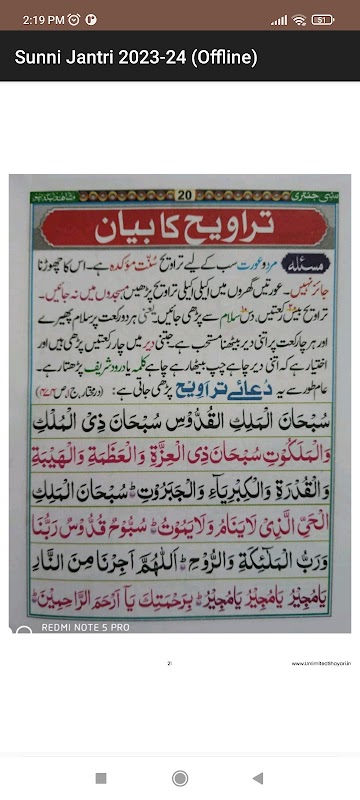 2:19 PM
51
Sunni Jantri 2023-24 (Offline)
سنی جنتری
20
تراویح کا بیان
مسئلہ مرد و عورت سب کے لیے تراویح سُنّتِ مؤکدہ ہے۔ اس کا چھوڑنا
جائز نہیں۔ عورتیں گھروں میں اکیلی اکیلی تراویح پڑھیں مسجدوں میں نہ جائیں۔
تراویح بیس رکعتیں، دس سلام سے پڑھی جائیں۔ یعنی ہر دو رکعت پر سلام پھیرے
اور ہر چار رکعت پر اتنی دیر بیٹھنا مستحب ہے جتنی دیر میں چار رکعتیں پڑھی ہیں اور
اختیار ہے کہ اتنی دیر چاہے چپ بیٹھا رہے چاہے کلمہ یا درود شریف پڑھتا رہے۔
عام طور سے یہ دُعائے تراویح پڑھی جاتی ہے:
سُبْحَانَ الْمَلِكِ الْقُدُّوْسِ سُبْحَانَ ذِی الْمُلْكِ
وَالْمَلَكُوْتِ سُبْحَانَ ذِی الْعِزَّةِ وَالْعَظَمَةِ وَالْهَيْبَةِ
وَالْقُدْرَةِ وَالْكِبْرِيَآءِ وَالْجَبَرُوْتِ ط سُبْحَانَ الْمَلِكِ
الْحَیِّ الَّذِیْ لَا يَنَامُ وَلَا يَمُوْتُ ط سُبُّوْحٌ قُدُّوْسٌ رَبُّنَا
وَرَبُّ الْمَلٰٓئِكَةِ وَالرُّوْحِ ط اَللّٰهُمَّ اَجِرْنَا مِنَ النَّارِ
يَا مُجِيْرُ يَا مُجِيْرُ يَا مُجِيْرُ ط بِرَحْمَتِكَ يَآ اَرْحَمَ الرَّاحِمِيْنَ ط
REDMI NOTE 5 PRO
21
www.UnlimitedShayari.in